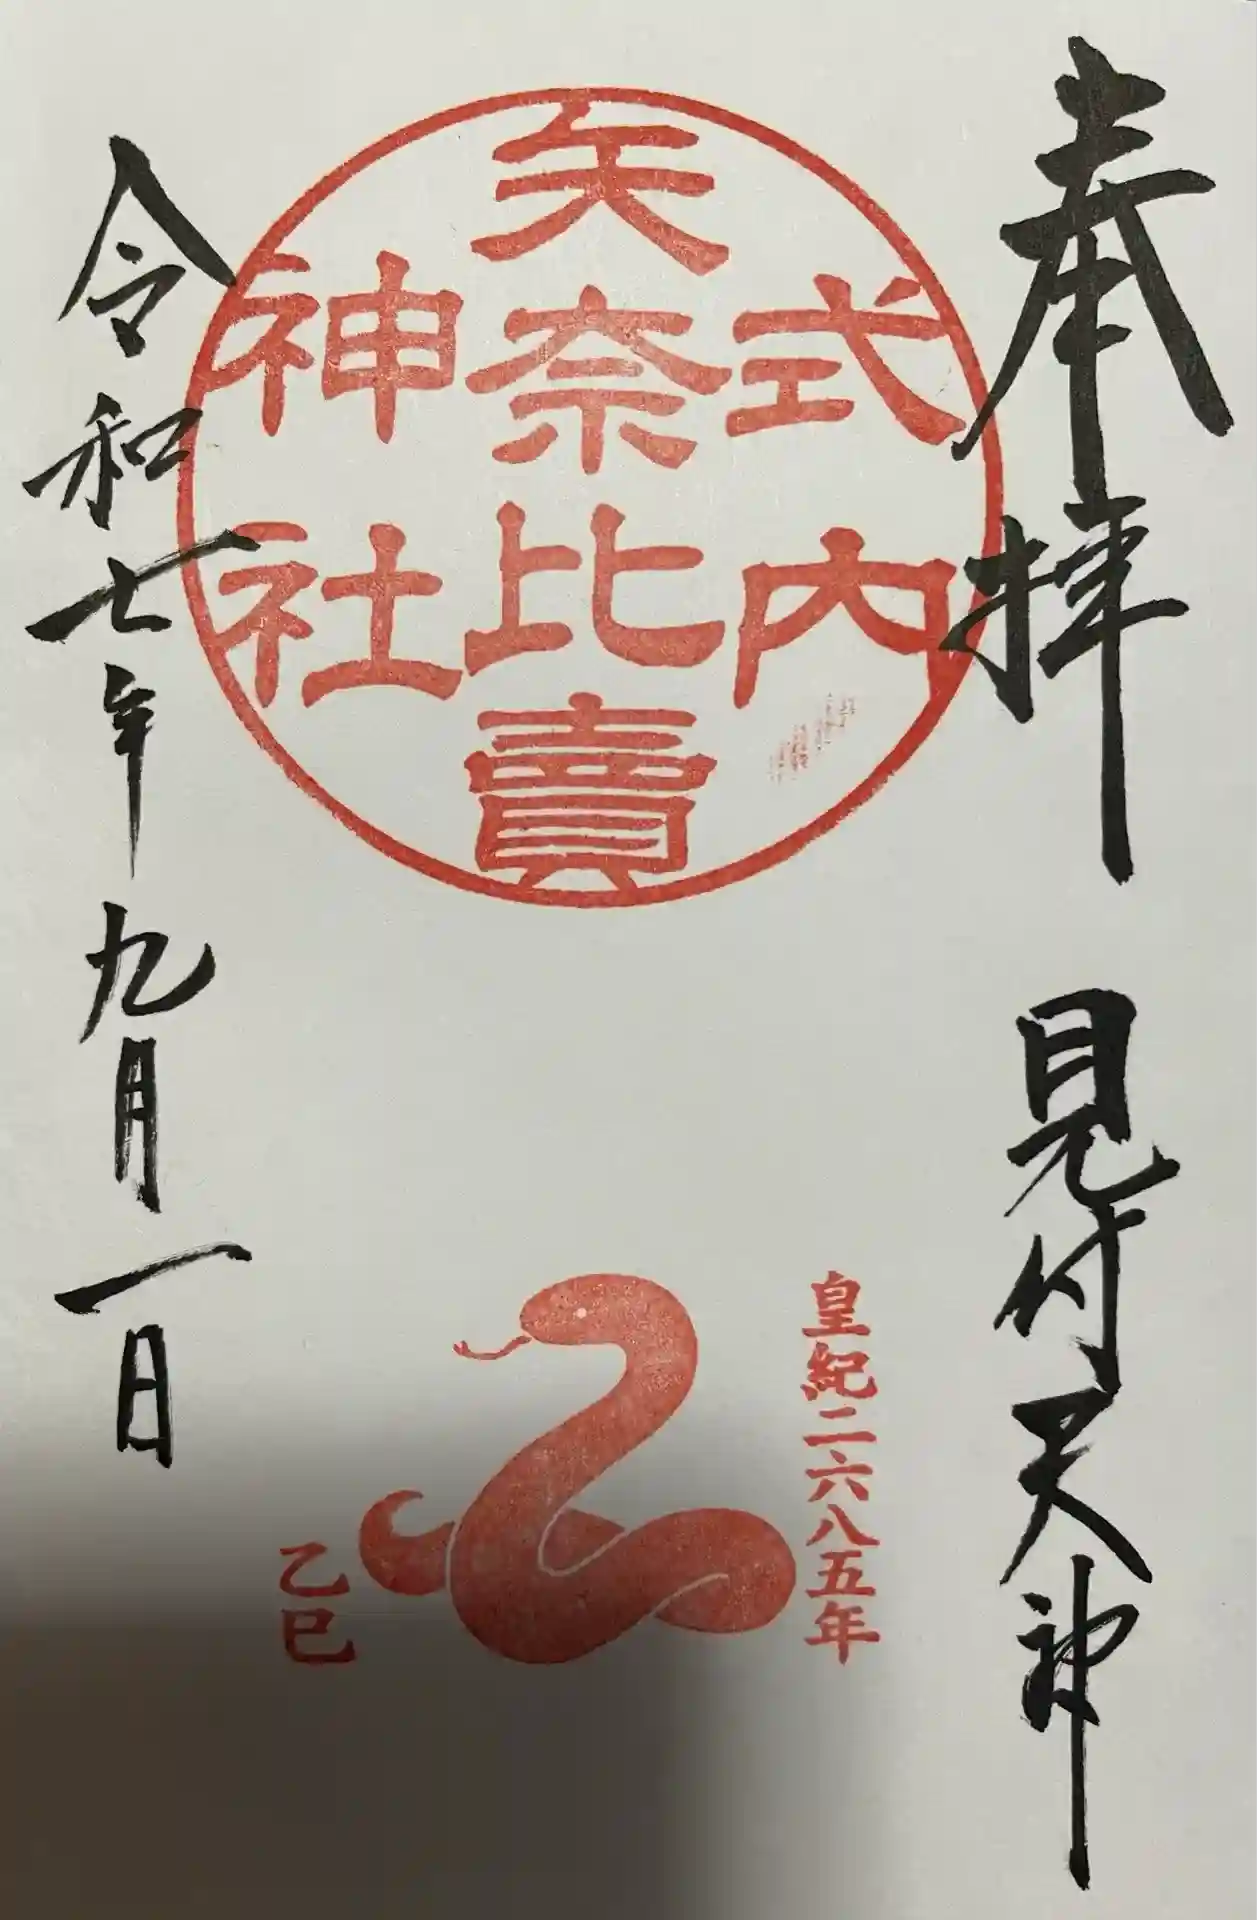 奉拝 見付天神
式内
矢奈比賣
神社
皇紀二六八五年
乙巳
令和七年九月一日